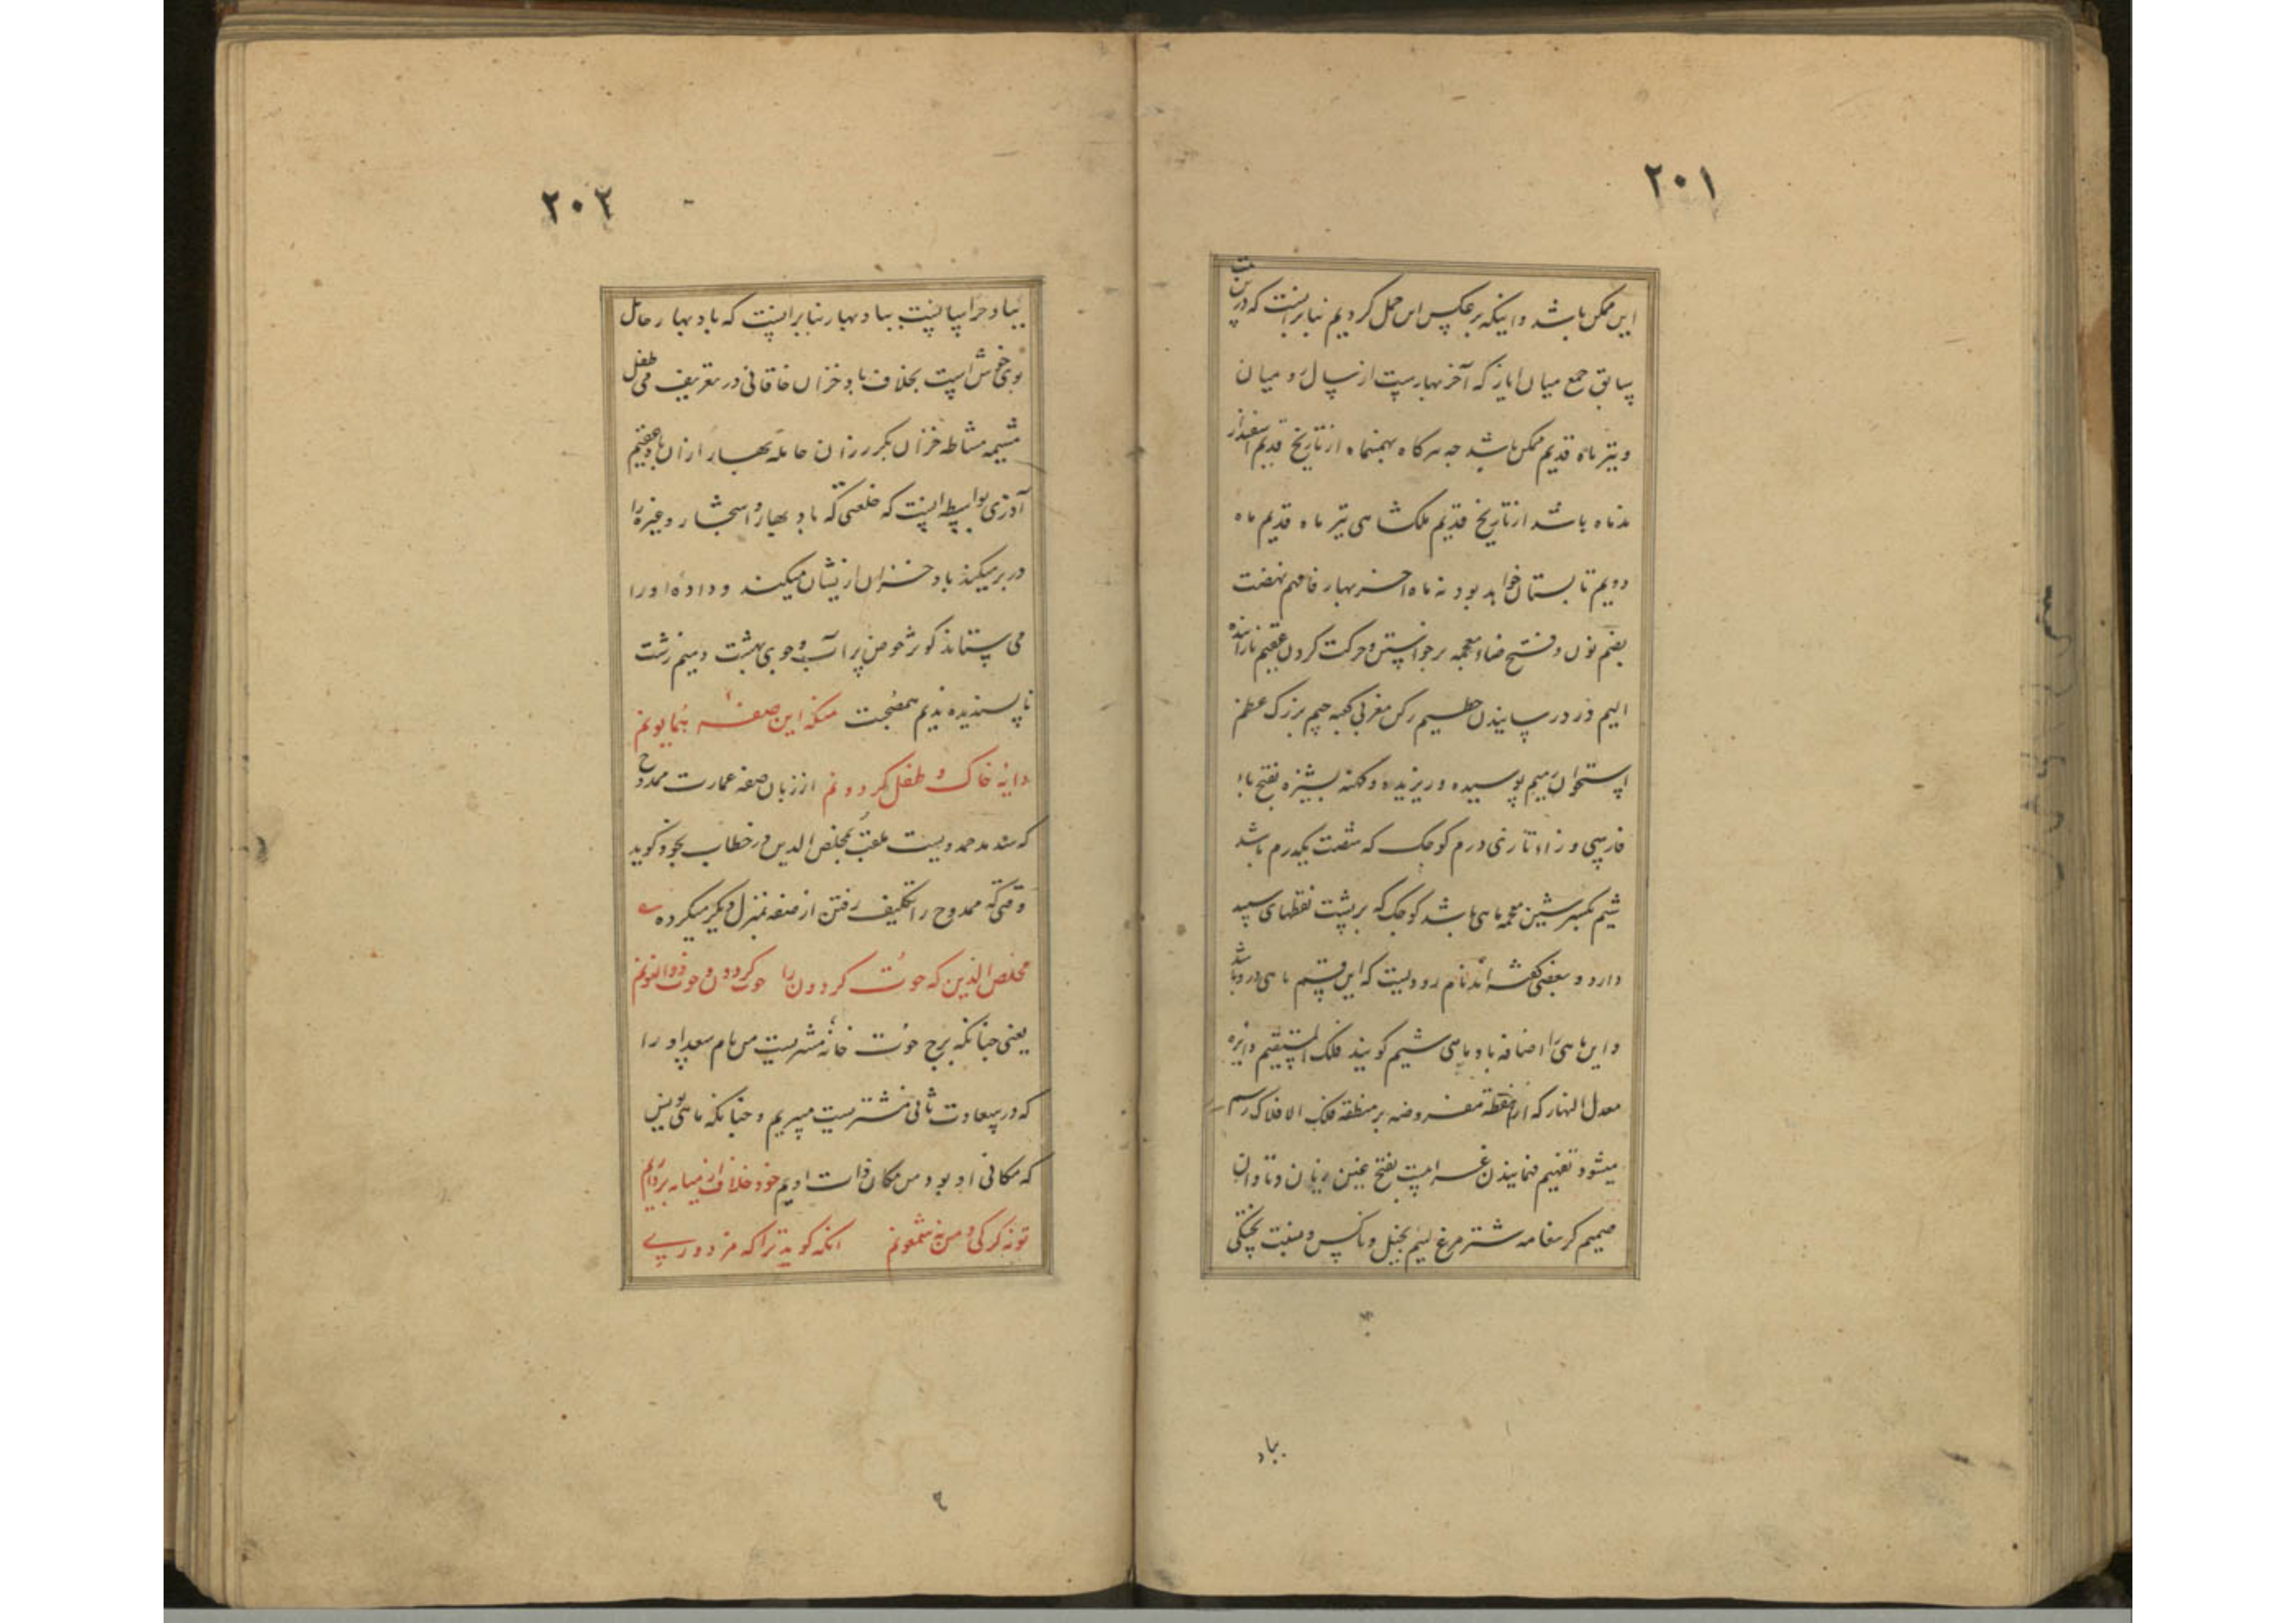 ۲۰۱
این ممکن باشد و اینکه بر عکس این حمل کردیم بنابر اینست که در بیت
سابق جمع میان ایار که آخر بهارست از سال رو میان
و تیر ماه قدیم ممکن باشد چه هر گاه بهمنماه از تاریخ قدیم اسفندار
مذماه باشد از تاریخ قدیم ملکشاهی تیر ماه قدیم ماه
دویم تابستان خواهد بود نه ماه آخر بهار فافهم نهضت
بضم نون و فتح ضاء معجمه برخواستن و حرکت کردن عقیم نازاینده
الیم درد رسانیدن حطیم رکن مغربی کعبه جیم بزرگ عظم
استخوان رمیم پوسیده و ریزیده و کهنه بشیزه بفتح باء
فارسی و زاء تازی درم کوچک که شصت یکدرم باشد
شیم بکسر شین معجمه ماهی باشد کوچک که بر پشت نقطهای سپید
دارد و بعضی گفته اند نام رودیست که این قسم ماهی در و باشد
و این ماهی را اضافه باو ماهی شیم گویند فلک المستقیم دایره
معدل النهار که از نقطه مفروضه بر منطقه فلک الافلاک رسم
میشود تفهیم فهمانیدن غرامت بفتح غین زیان و تاوان
صمیم گرما نعامه شترمرغ لئیم بخیل و ناکس و نسبت پختگی
بباد
۲۰۲
بباد خراسانیت بباد بهار بنابر اینست که باد بهار حامل
بوی خوش است بخلاف باد خزان خاقانی در تعریف می طفل
مشیمه مشاطه خزان بکر رزان حامله بهار ازان باد عقیم
آذری بواسطه اینست که خلعتی که باد بهار و اسحار و غیره را
در بر میکند باد خزان ازیشان میکند و داده او را
می ستاند کوثر حوض پر آب و جوی بهشت دمیم زشت
ناپسندیده ندیم همصحبت منکه این صفه همایونم
دایه خاک و طفل گردونم از زبان صفه عمارت ممدوح
که سدید حمدویست ملقب بمخلص الدین در خطاب بخود گوید
وقتی که ممدوح را تکلیف رفتن از صفه بمنزل دیگر میکرده
مخلص الدین که حوت گردون را حوت گردون و حوت ذوالنونم
یعنی چنانکه برج حوت خانه مشتریست من هام سعد او را
که در سعادت ثانی مشتریست سپهریم و چنانکه ماهی یونس
که مکانی او بود من مکان ذات اویم خود خلاف از میانه برداریم
تو نه کرکی و من نه شمعونم انکه گوید ترا که مزدورے